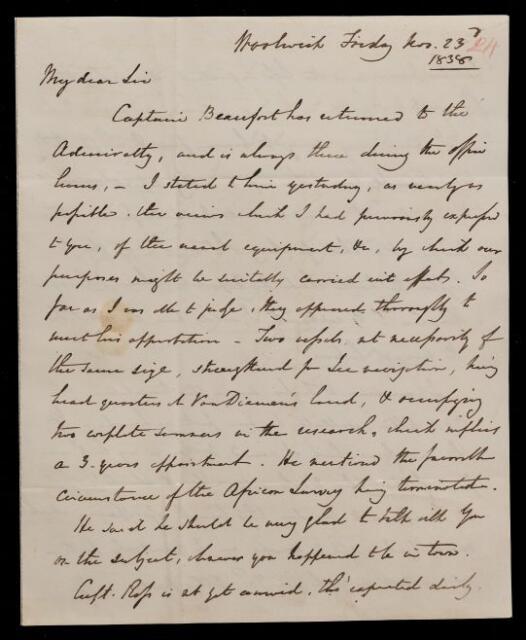 Woolwich Friday Nov. 23d
1838
My dear Sir
Captain Beaufort has returned to the
Admiralty, and is always there during the office
hours, – I stated to him yesterday, as nearly as
possible the views which I had previously expressed
to you, of the naval equipment, &c, by which our
purposes might be suitably carried into effect. So
far as I was able to judge, they appeared thoroughly to
meet his approbation – Two vessels, not necessarily of
the same size, strengthened for Ice navigation, having
head quarters at Van Diemen's land, & occupying
two complete summers in the research, which implies
a 3 years appointment. He mentioned the favorable
circumstance of the African Survey being terminated.
He said he should be very glad to talk with you
on the subject, whenever you happened to be in town.
Capt. Ross is as yet unarrived, tho' expected daily.